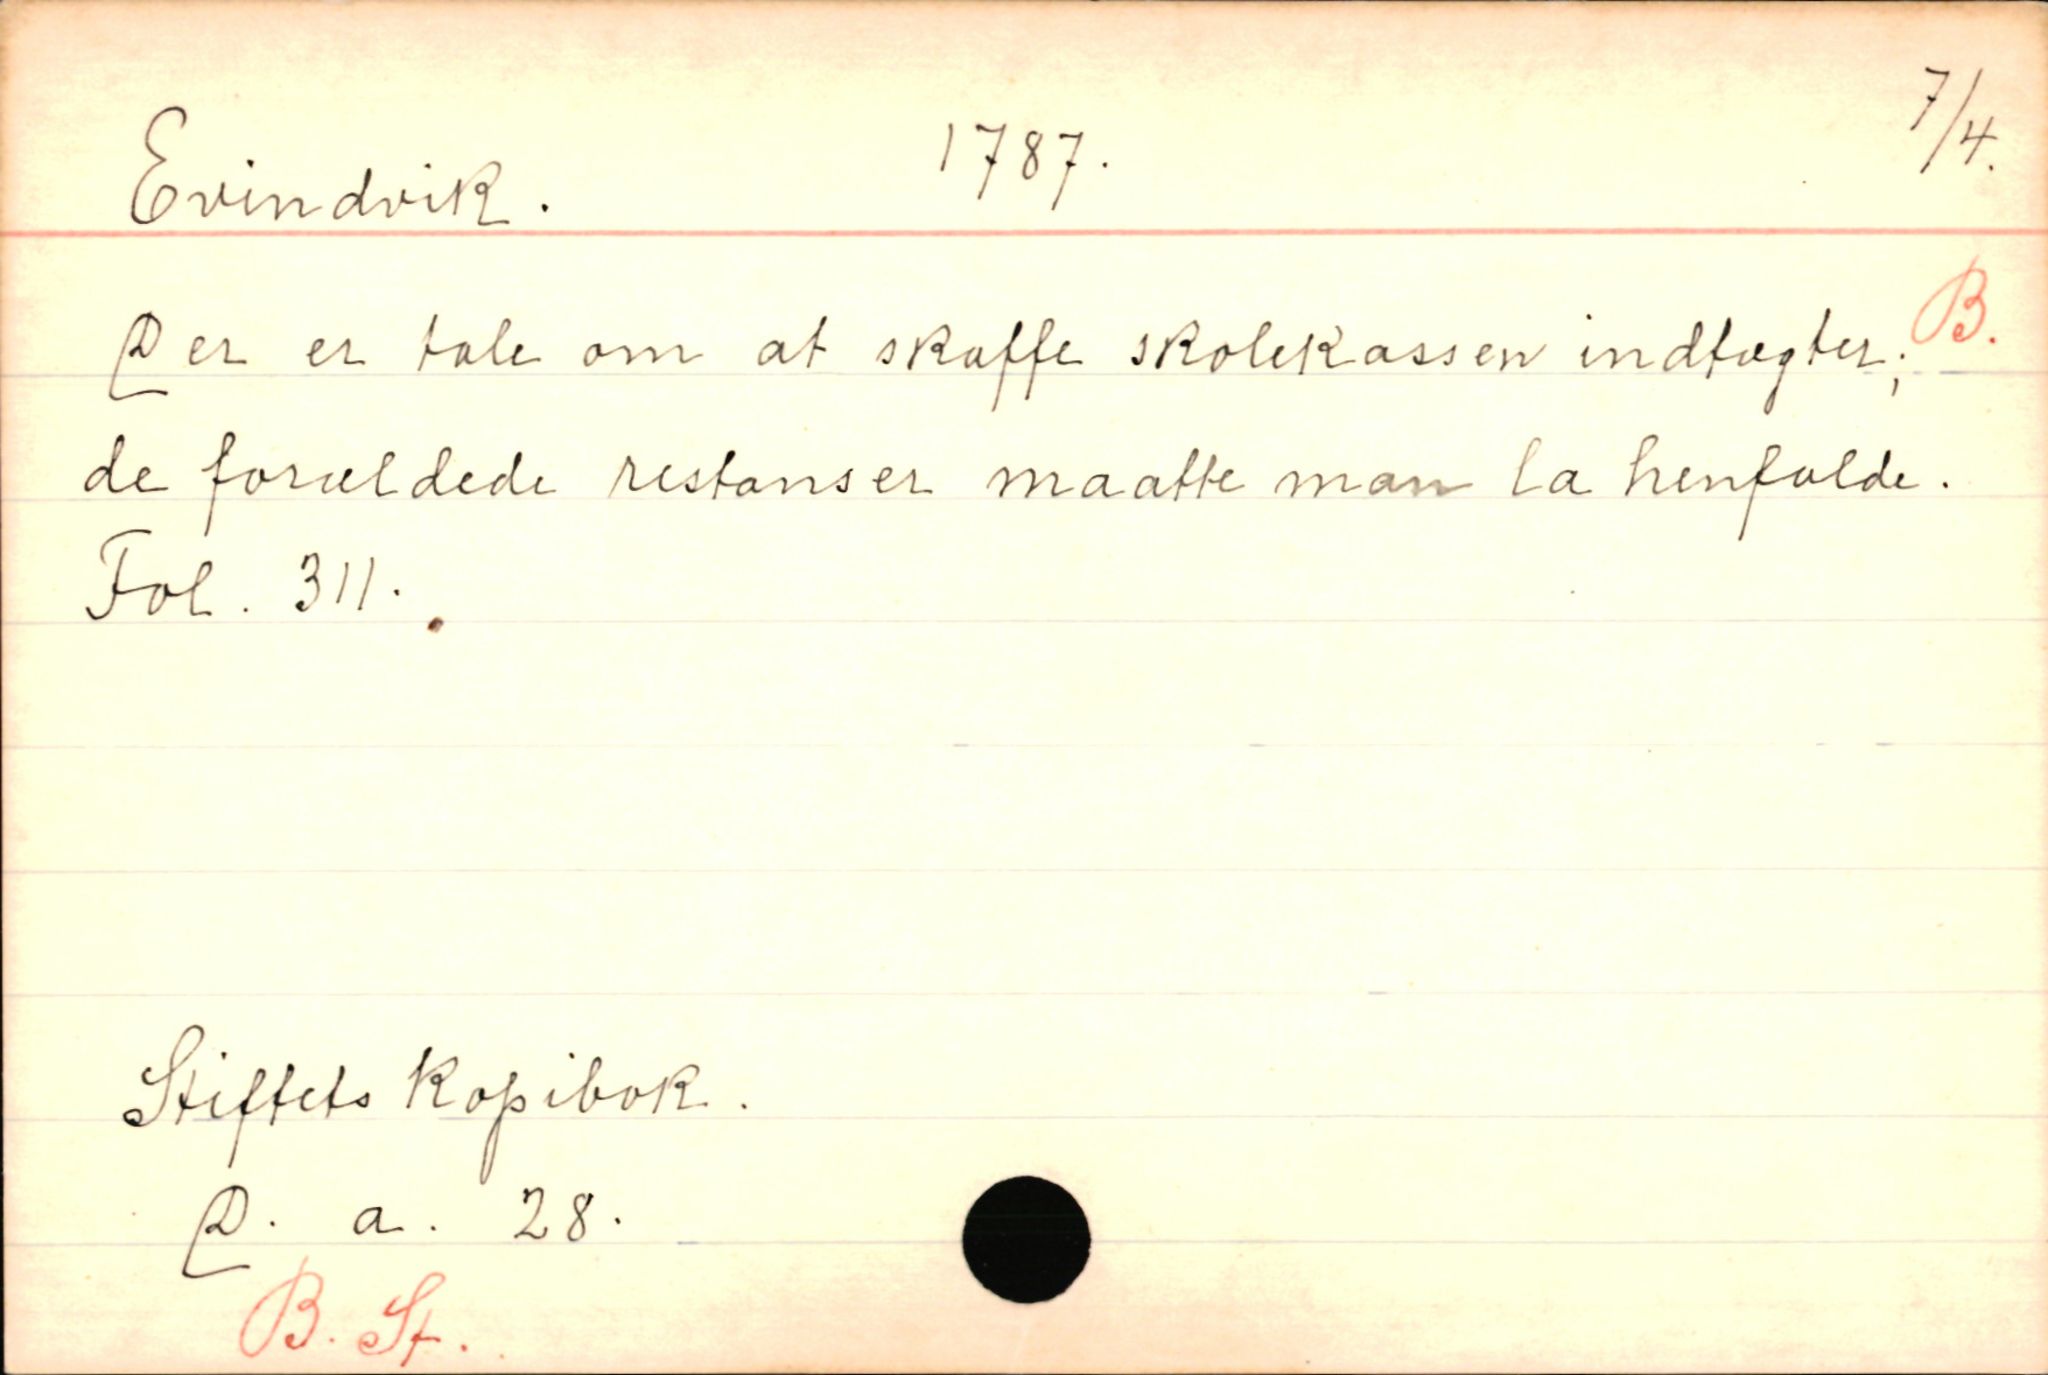 Evindvik. 1787. 7/4.
B.
Der er tale om at skaffe skolekassen indtægter;
de forældede restanser maatte man la henfalde.
Fol. 311.
Stiftets Kopibok.
D. a. 28.
B. St.